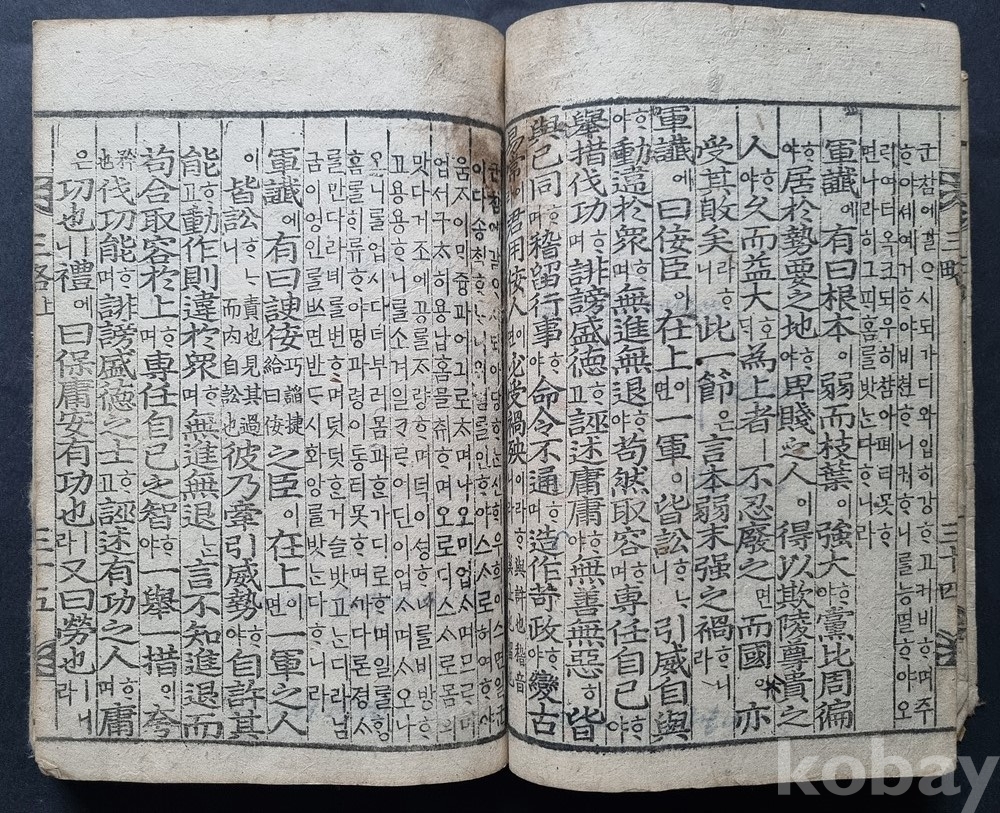 三畧 三十四
군참에ᄀᆞᆯᄋᆞ시되가디와입히강ᄒᆞ고커비ᄒᆞ며주
ᄒᆞ야셰예거ᄒᆞ야비쳔ᄒᆞ니져ᄒᆞ니를능멸ᄒᆞ야오
리여더옥크되우히ᄎᆞᆷ아폐티못ᄒᆞ
면나라히그피홈를밧ᄂᆞ다ᄒᆞ니라
軍讖에有曰根本이弱而枝葉이強大ᄒᆞ야黨比周徧
ᄒᆞ야居於勢要之地ᄒᆞ야卑賤之人이得以欺陵尊貴之
人ᄒᆞ야久而益大ᄒᆞ되為上者ㅣ不忍廢之면而國이亦
受其敗矣라ᄒᆞ니此一節은言本弱末强之禍ᄒᆞ니라
軍讖에曰佞臣이在上이면一軍이皆訟ᄒᆞᄂᆞ니引威自與
ᄒᆞ야動違於衆ᄒᆞ며無進無退ᄒᆞ야苟然取容ᄒᆞ며專任自己ᄒᆞ야
舉措伐功ᄒᆞ며誹謗盛德ᄒᆞ고誣述庸庸ᄒᆞ야無善無惡히皆
與己同ᄒᆞ며稽留行事ᄒᆞ야命令不通ᄒᆞ며造作苛政ᄒᆞ야變古
易常君用佞人이면必受禍殃
군참에
이다송
움지이미즁과어긔로ᄐᆡ며나오미업ᄉᆞ며므르며
업서구ᄐᆡ허용납홈믈츄ᄒᆞ며오로디스스로몸의
맛다거조에공를ᄌᆞ랑ᄒᆞ며덕이셩ᄒᆞ니를비방ᄒᆞ
고용용ᄒᆞ니를
오니를업시다더부러몸과ᄒᆞᆫ가디로ᄒᆞ며일를ᄒᆡᆼ
홈를히류ᄒᆞ야명과령이동티못ᄒᆞ며
를만다라녜를변ᄒᆞ며덧덧ᄒᆞᆫ거슬밧고ᄂᆞᆫ디라님
금이영인를ᄡᅳ면반ᄃᆞ시화앙를밧ᄂᆞᆫ다ᄒᆞ니라
軍讖에有曰諛佞巧謟捷給曰佞之臣이在上이면一軍之人
이皆訟ᄒᆞᄂᆞ니責也見其過而內自訟也彼乃牽引威勢ᄒᆞ야自許其
能ᄒᆞ고動作則違於衆ᄒᆞ며無進無退ᄂᆞᆫ言不知進退而
苟合取容於上ᄒᆞ며專任自己之智ᄒᆞ야一舉一措의夸
矜也伐功能ᄒᆞ며誹謗盛德之士ᄒᆞ고誣述有功之人ᄒᆞ며庸
은功也ㅣ니禮에曰保庸安有功也ㅣ라又曰勞也ㅣ라ㅣ니
三略上 三十五
kobay